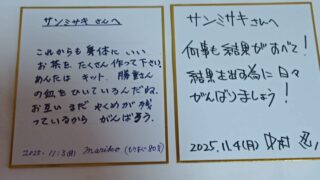 サンミサキ さんへ
これからも 身体に いい
お茶を、たくさん 作って下さい。
あんたは キット、勝重さん
の血を ひいているんだね。
お互い まだ やくめが 残
っているから がんばろう。
2025. 11. 3(月) mariko
サンミサキさんへ
何事も結果がすべて!
結果を出す為に日々
がんばりましょう!
2025. 11. 4(月)